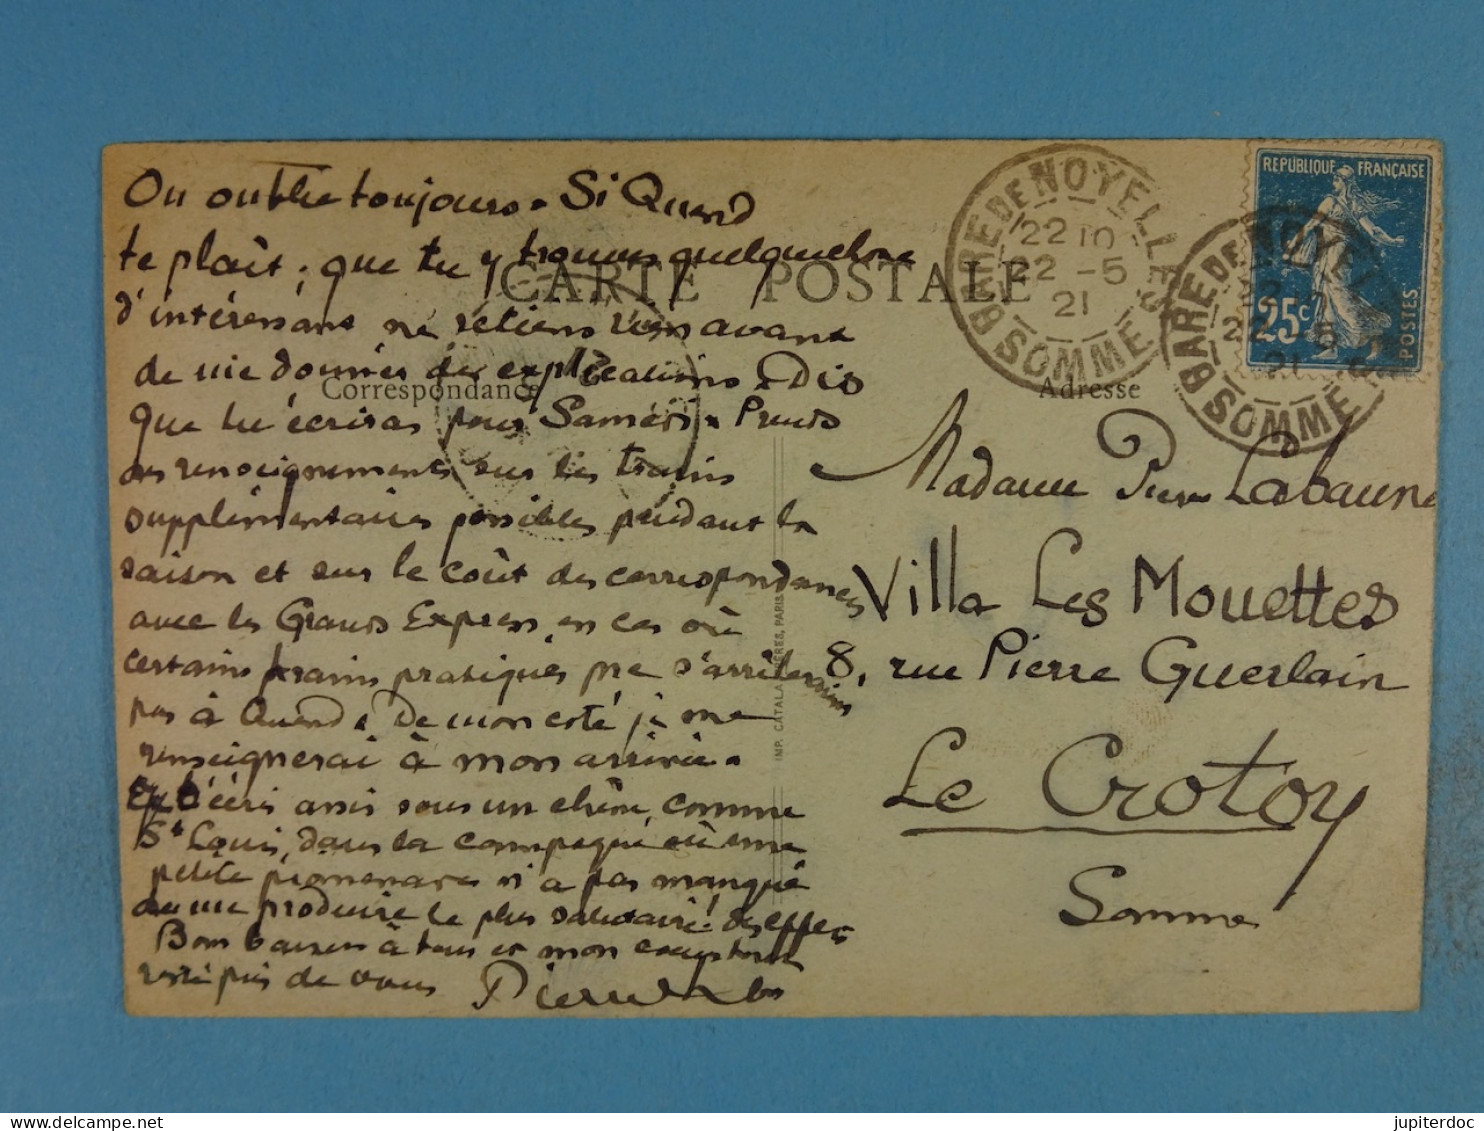 On oublie toujours. Si Quend
te plaît, que tu y trouves quelque chose
d'intéressant ne retiens rien avant
de me donner des explications. Dis
que tu écriras pour Samedi. Prends
des renseignements sur les trains
supplémentaires possibles pendant la
saison et sur le coût des correspondances
avec les Grands Express, en cas où
certains trains pratiques ne s'arrêteraient
pas à Quend. De mon côté je me
renseignerai à mon arrivée.
assis sous un chêne, comme
St Louis, dans la campagne où une
petite promenade n'a pas manqué
de me produire le plus salutaire des effets
Bons baisers à tous et mon
resté près de vous Pierre
CARTE POSTALE
Correspondance
Adresse
IMP. CATALA FRÈRES, PARIS
GARE DE NOYELLES
22 10
22 -5
21
SOMME
GARE DE NOYELLES
22 -5
21
SOMME
REPUBLIQUE FRANÇAISE
25c
POSTES
Madame Pierre Labaune
Villa Les Mouettes
8, rue Pierre Guerlain
Le Crotoy
Somme
jupiterdoc